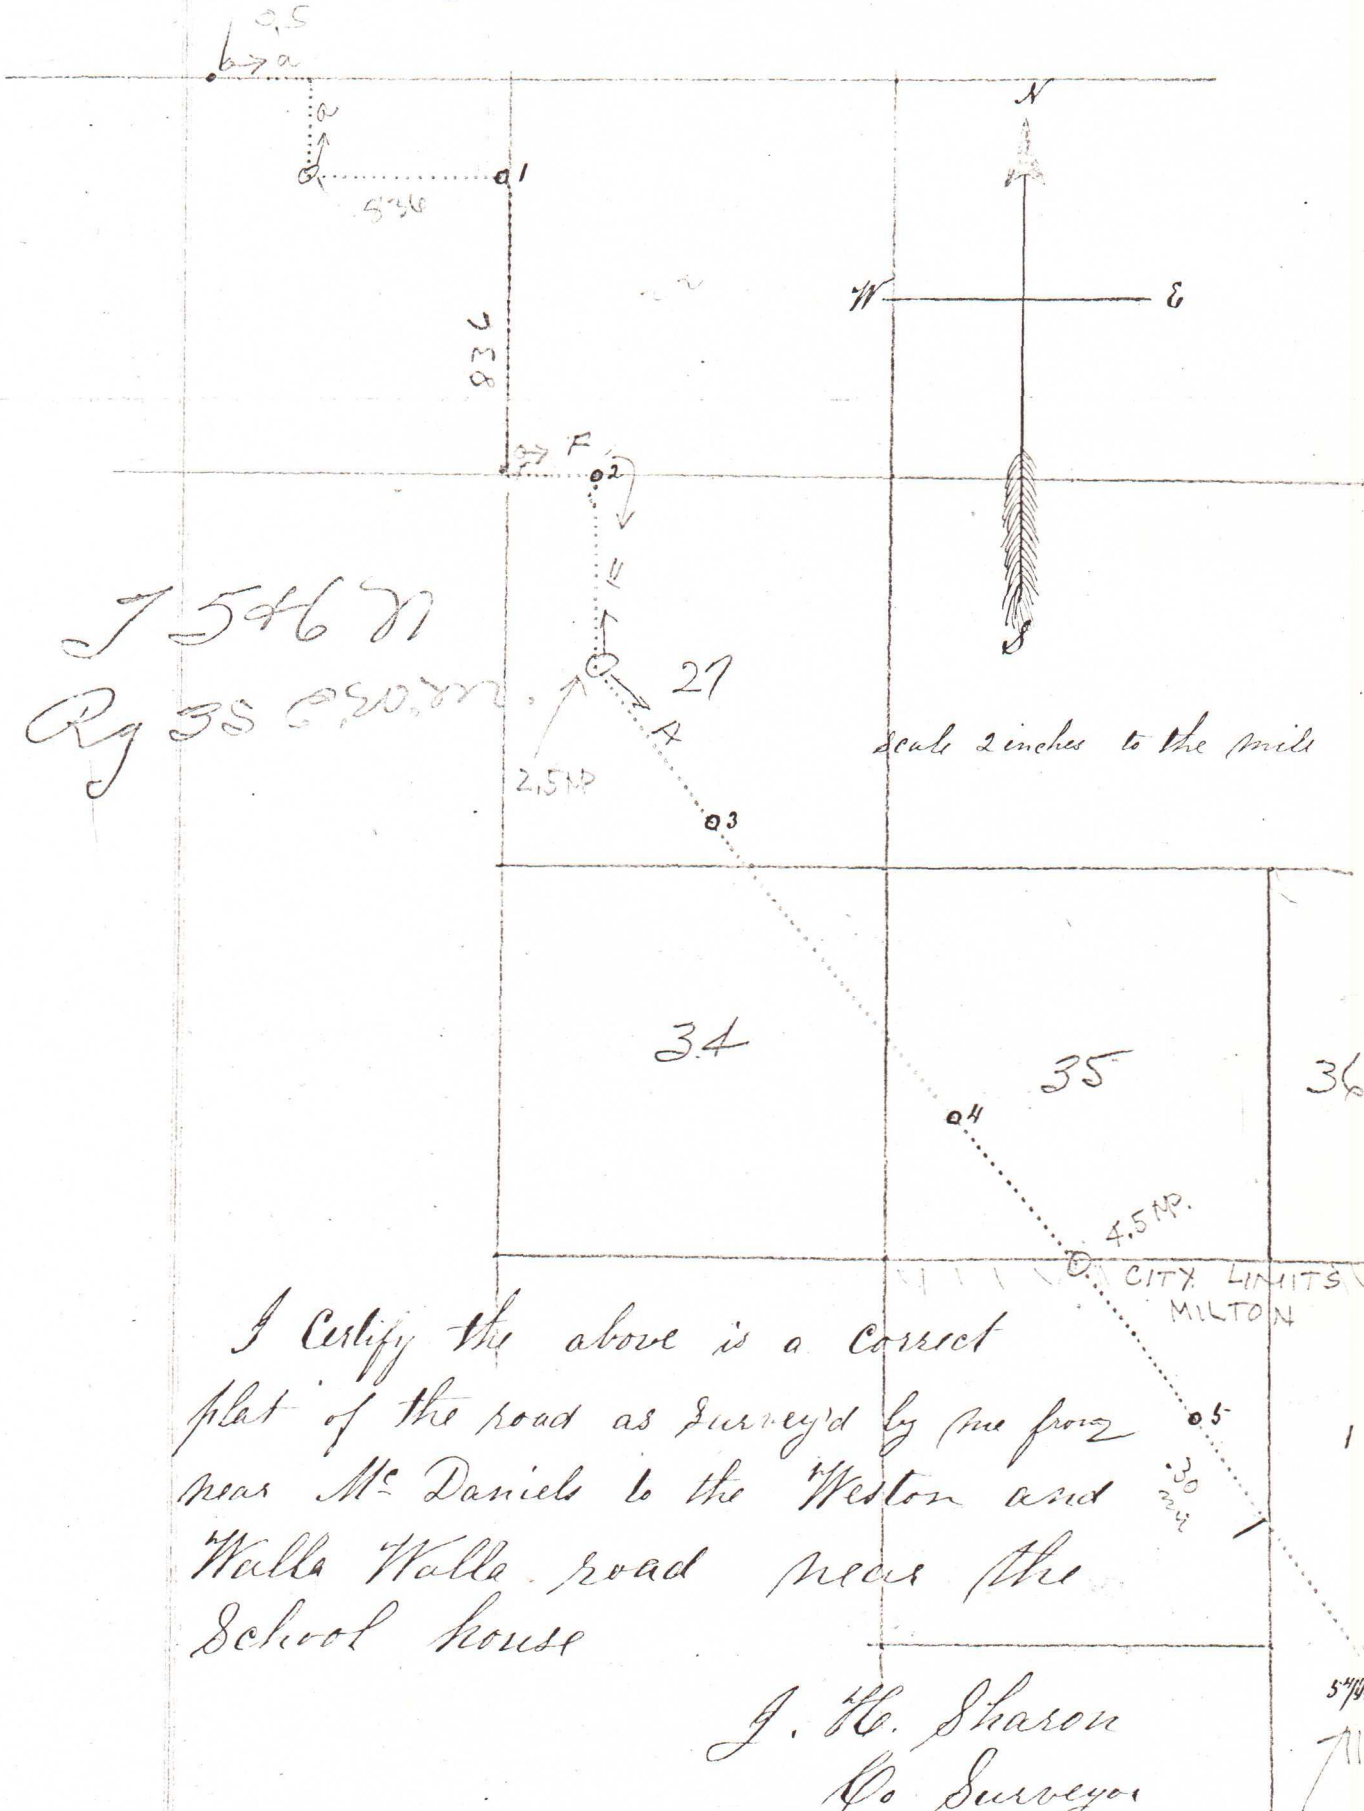 0,5
b→ a
N
a
1
836
W E
836
a→ F
2
T 5 & 6 N
Rg 35
F
S
27
A
scale 2 inches to the mile
2.5 MP
3
34
35
36
4
4.5 MP.
CITY LIMITS
MILTON
I Certify the above is a correct
plat of the road as Survey'd by me from
near Mc Daniels to the Weston and
Walla Walla road near the
School house
5
1
.30
J. H. Sharon
Co Surveyor